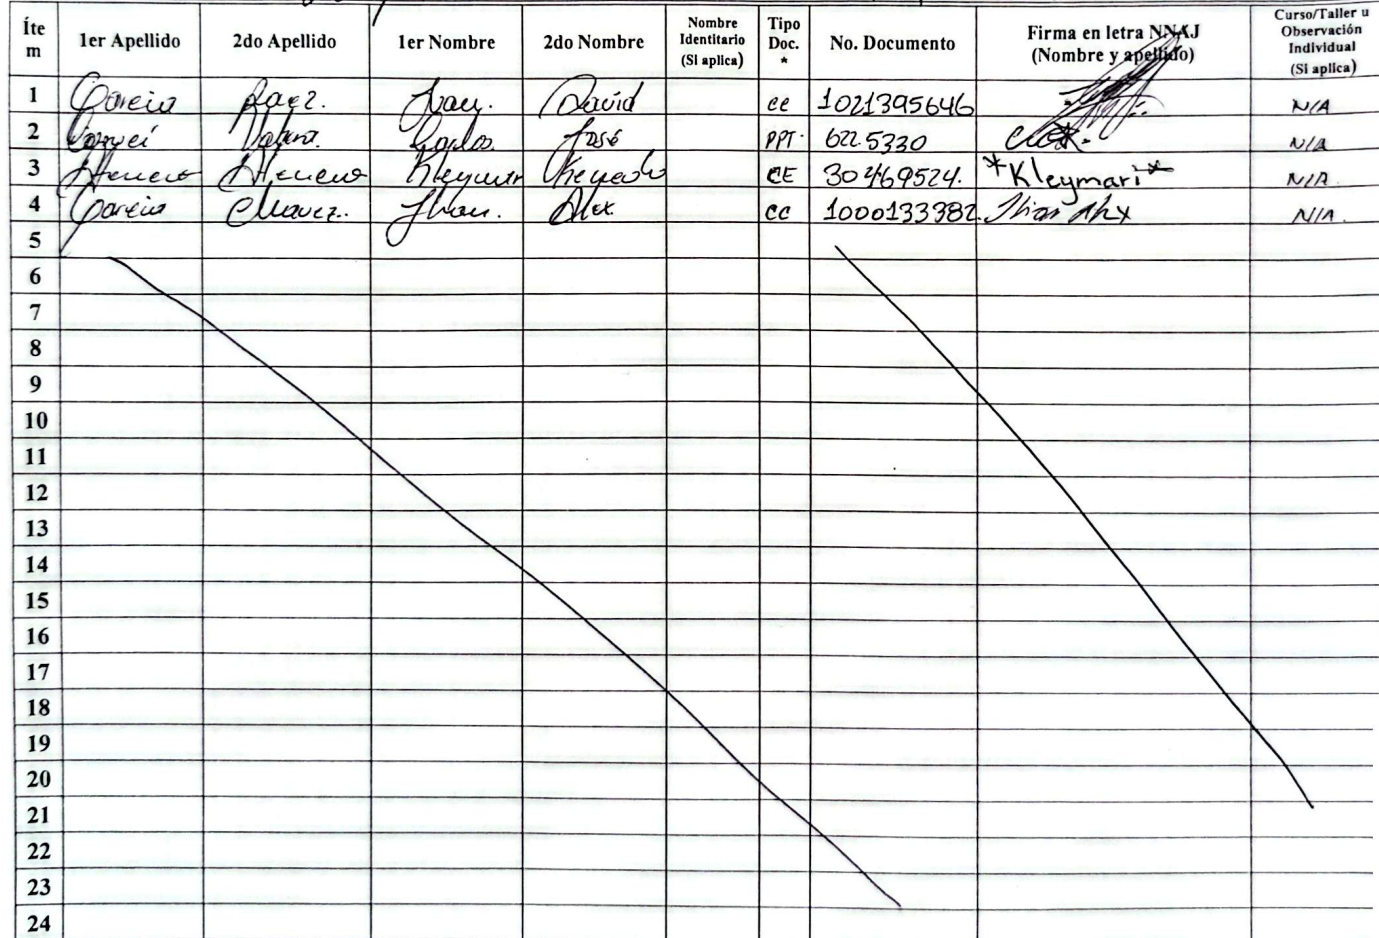 Íte
m 1er Apellido 2do Apellido 1er Nombre 2do Nombre Nombre Identitario (Si aplica) Tipo Doc. * No. Documento Firma en letra NNAJ (Nombre y apellido) Curso/Taller u Observación Individual (Si aplica)
1 Garcia Juan. David cc 1021395646 N/A
2 Carlos. José PPT. 622.5330 N/A
3 CE 30469524. *Kleymari* N/A.
4 Garcia Chavez. Jhon. Alex. cc 1000133382. Jhon Alex N/A.
5
6
7
8
9
10
11
12
13
14
15
16
17
18
19
20
21
22
23
24